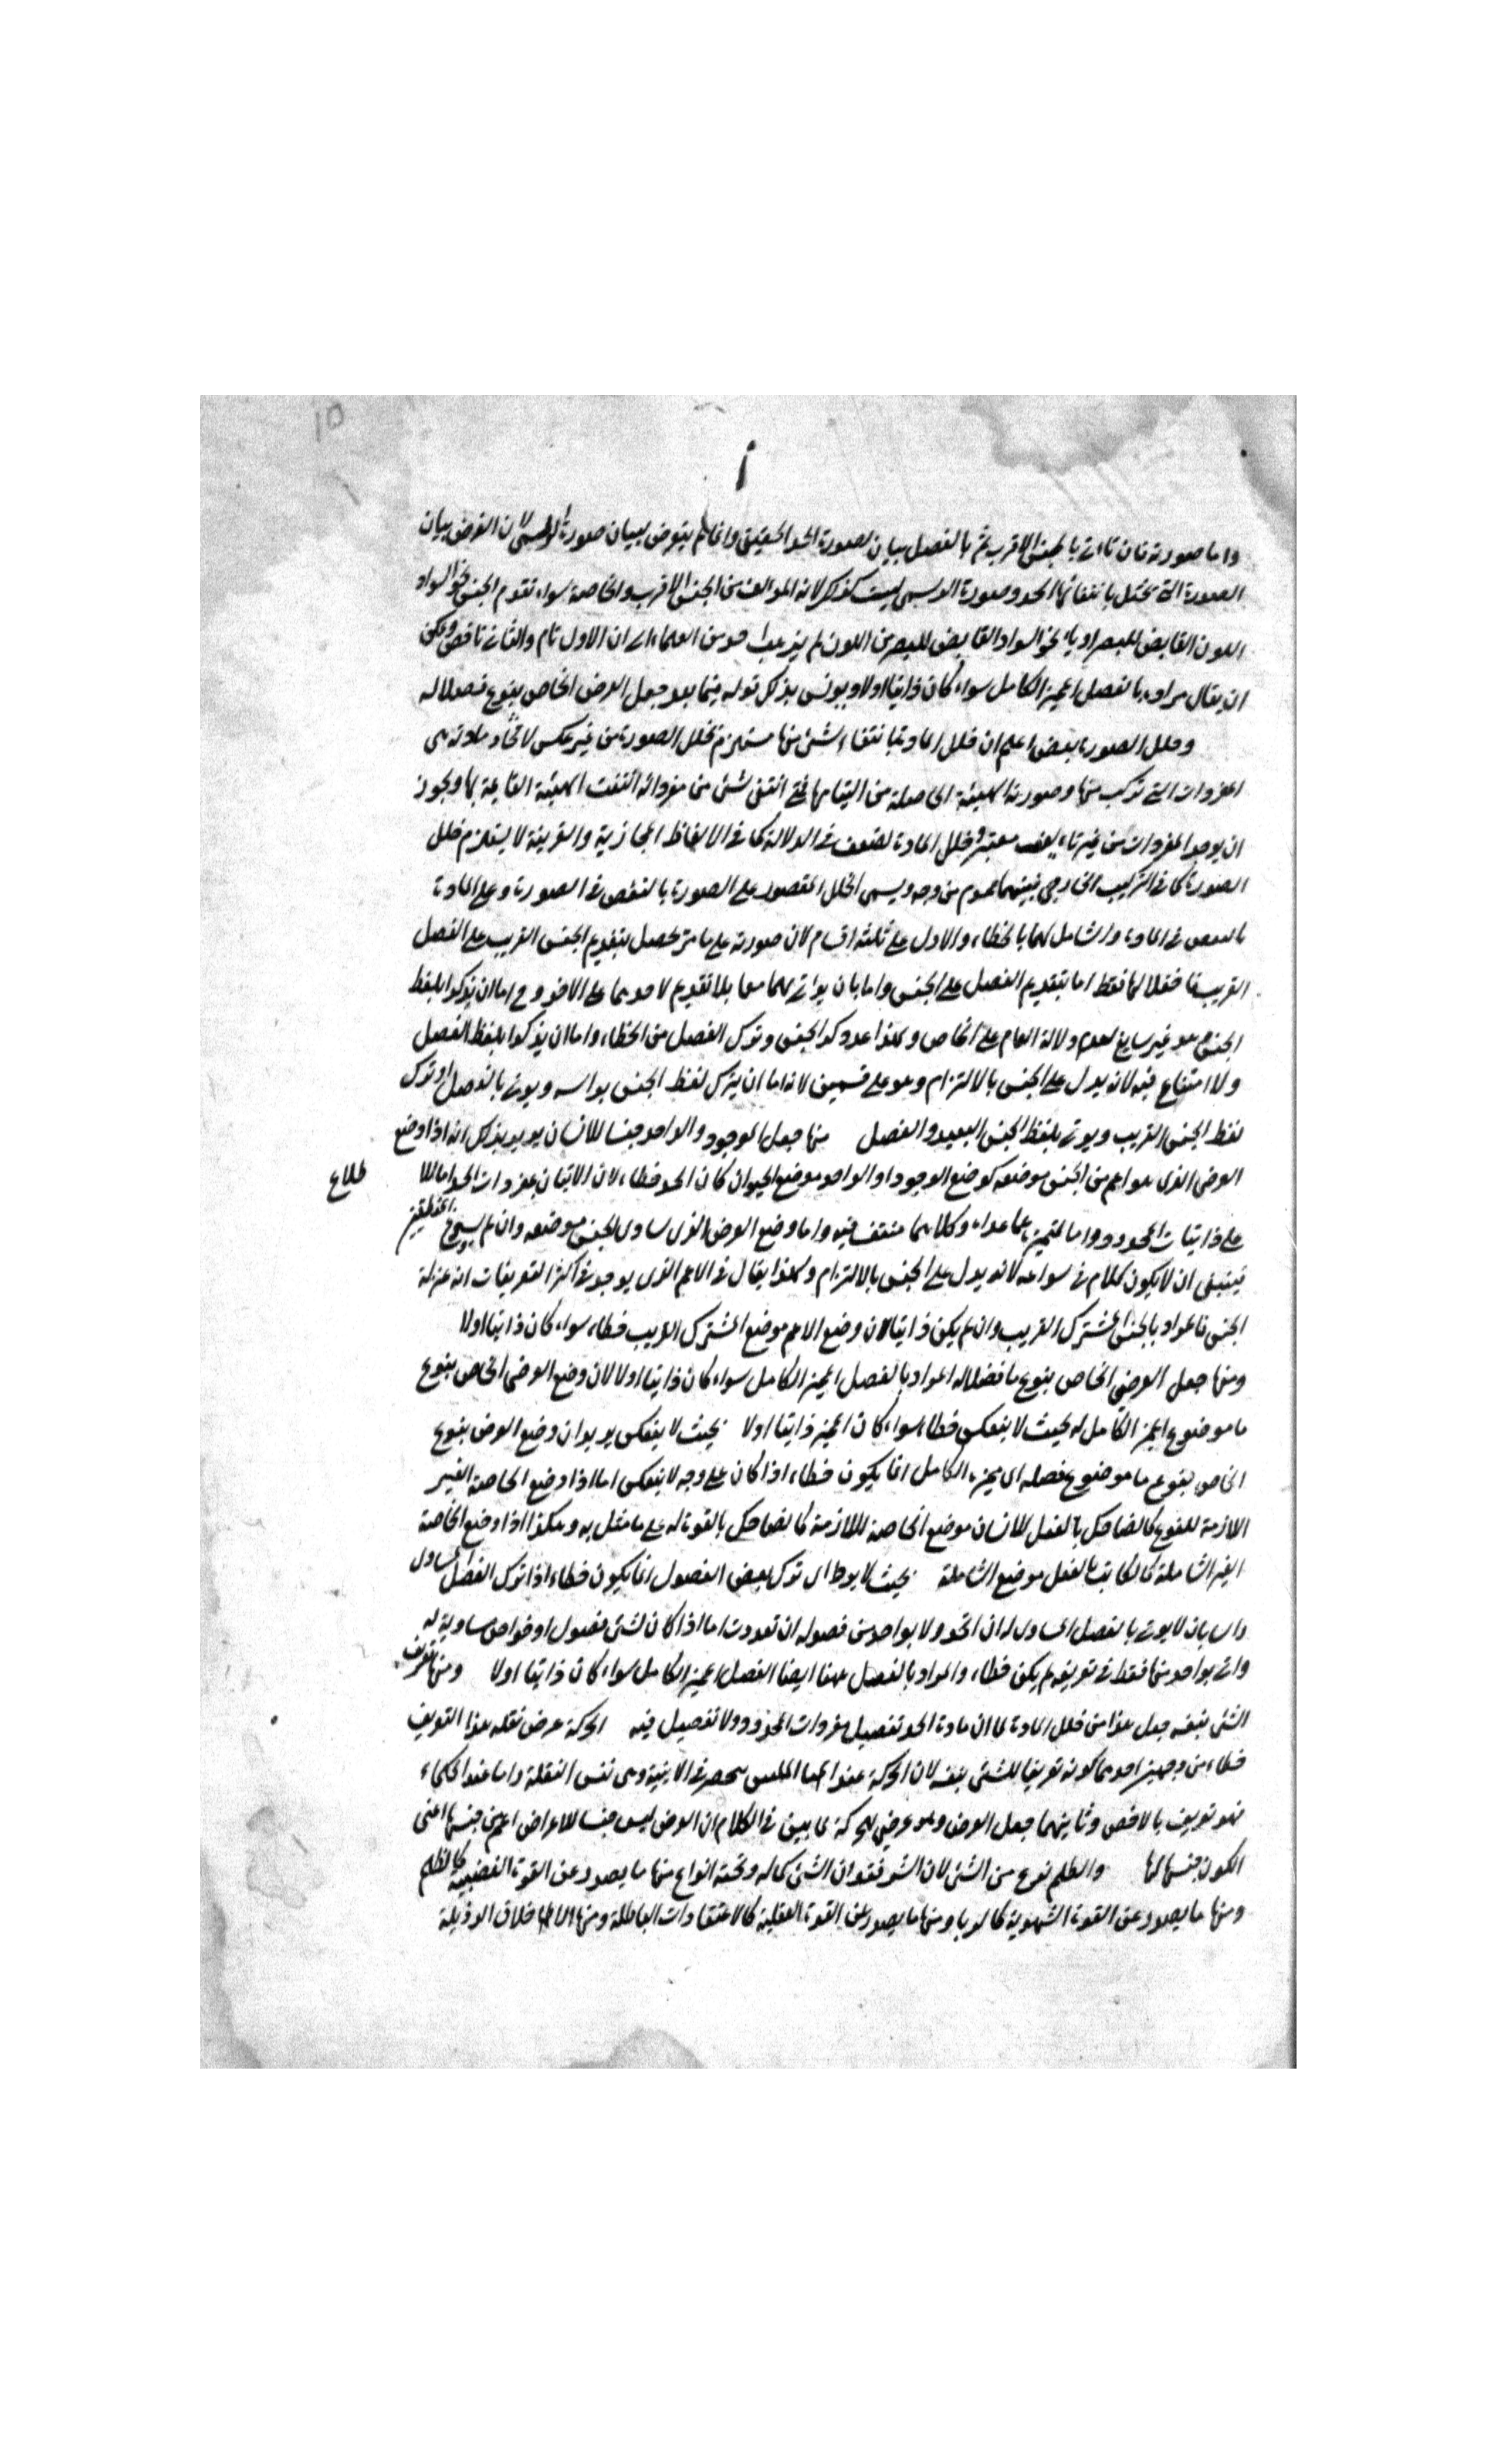 ١٥
واما صورته فان تاتي بالجنس الاقرب ثم بالفصل بيان لصورة الحد الحقيقي وانما لم يتعرض لبيان صورة الرسمي لان الغرض بيان
الصورة التي يختل بانتفائها الحد وصورة الرسمي ليست كذلك لانه المؤلف من الجنس الاقرب والخاصة سواء تقدم الجنس نحو السواد
اللون القابض للبصر او بالـ نحو السواد القابض للبصر من اللون لم يذهب احد من العلماء الى ان الاول تام والثاني ناقص ويمكن
ان يقال مراده بالفصل المميز الكامل سواء كان ذاتيا اولا ويونس بذلك قوله فيما بعد جعل العرض الخاص بنوع فصلا له
وخلل الصورة بعض اعلم ان خلل المادة بانتفاء شئ منها مستلزم لخلل الصورة من غير عكس لان مادته هى
المفردات التي تركب منها وصورته الهيئة الحاصلة من التيامها فمتى انتفى شئ من مفرداته انتفت الهيئة القايمة بها ويجوز
ان يوجد المفردات من غير تاليف معتبر وخلل المادة لضعف في الدلالة كما في الالفاظ المجازية والقرينة لا يستلزم خلل
الصورة كما في التركيب الخارجي فبينهما عموم من وجه ويسمى الخلل المقصور على الصورة بالنقص في الصورة وعلى المادة
بالنقص في المادة والشامل لهما بالخطاء والاول على ثلثة اقسام لان صورته على ما مر تحصل بتقديم الجنس القريب على الفصل
القريب فاختلالها فقط اما بتقديم الفصل على الجنس واما بان يؤتى بهما معا بلا تقديم لاحدهما على الاخر وح اما ان يذكرا بلفظ
الجنس وهو غير سايغ لعدم دلالة العام على الخاص ولهذا عد ذكر الجنس وترك الفصل من الخطاء واما ان يذكرا بلفظ الفصل
ولا امتناع فيه لانه يدل على الجنس بالالتزام وهو على قسمين لانه اما ان يترك لفظ الجنس براسه ويؤتى بالفصل او ترك
لفظ الجنس القريب ويؤتى بلفظ الجنس البعيد والفصل منها جعل الموجود والواحد جنسا للانسان يريد بذلك انه اذا وضع
العرضي الذي هو اعم من الجنس موضعه كوضع الموجود او الواحد موضع الحيوان كان الحد خطاء لان الاتيان بمفردات الحد اما للا
طلاع
على ذاتيات المحدود واما لتميزه عما عداه وكلاهما منتف فيه واما وضع العرض الذي ساوى الجنس موضعه وان لم يسوغ المنطقيين
فينبغي ان لا يكون كلام في سواغه لانه يدل على الجنس بالالتزام وكذا يقال في الاعم الذي يوجد في اكثر التعريفات انه بمنزلة
الجنس فالمراد بالجنس المشترك القريب وان لم يكن ذاتيا لان وضع الاعم موضع المشترك القريب خطاء سواء كان ذاتيا اولا
ومنها جعل العرضي الخاص بنوع ما فصلا له المراد بالفصل المميز الكامل سواء كان ذاتيا اولا لان وضع العرضي الخاص بنوع
ما موضوع المميز الكامل له بحيث لا ينعكس خطاء سواء كان المميز ذاتيا اولا بحيث لا ينعكس يريد ان وضع العرض بنوع
الخاص بنوع ما موضوع فصله اى مميزه الكامل انما يكون خطاء اذا كان على وجه لا ينعكس اما اذا وضع الخاصة الغير
اللازمة للنوع كالضاحك بالفعل للانسان موضع الخاصة اللازمة كالضاحك بالقوة له على ما مثل به وهكذا اذا وضع الخاصة
الغير الشاملة كالكاتب بالفعل موضع الشاملة بحيث لا يوط اى ترك بعض الفصول انما يكون خطاء اذا ترك الفصل المساوى
راسا بان لا يؤتى بالفصل المساوى له ان اتحد ولا بواحد من فصوله ان تعددت اما اذا كان لشئ فصول او خواص مساوية له
واتى بواحد منها فقط في تعريفه لم يكن خطاء والمراد بالفصل ههنا ايضا الفصل المميز الكامل سواء كان ذاتيا اولا ومنها تعريف
الشئ بنفسه جعل هذا من خلل المادة لما ان مادة الحد تفصيل مفردات المحدود ولا تفصيل فيه الحركة عرض نقله هذا التعريف
خطاء من وجهين احدهما كونه تعريفا للشئ بنفسه لان الحركة عند المتكلمين منحصر في الاينية وهى نفس النقلة واما عند الحكماء
فهو تعريف بالاخص وثانيهما جعل العرض وهو عرضي للحركة لما بين في الكلام ان العرض ليس جنسا للاعراض اعم من جنسها اعنى
الكون جنسا لها والظلم نوع من الشئ لان الشر فقدان الشئ كماله وتحته انواع منها ما يصدر عن القوة الغضبية كالظلم
ومنها ما يصدر عن القوة الشهوية كالربا ومنها ما يصدر عن القوة العقلية كالاعتقادات الباطلة ومنها الاخلاق الرذيلة